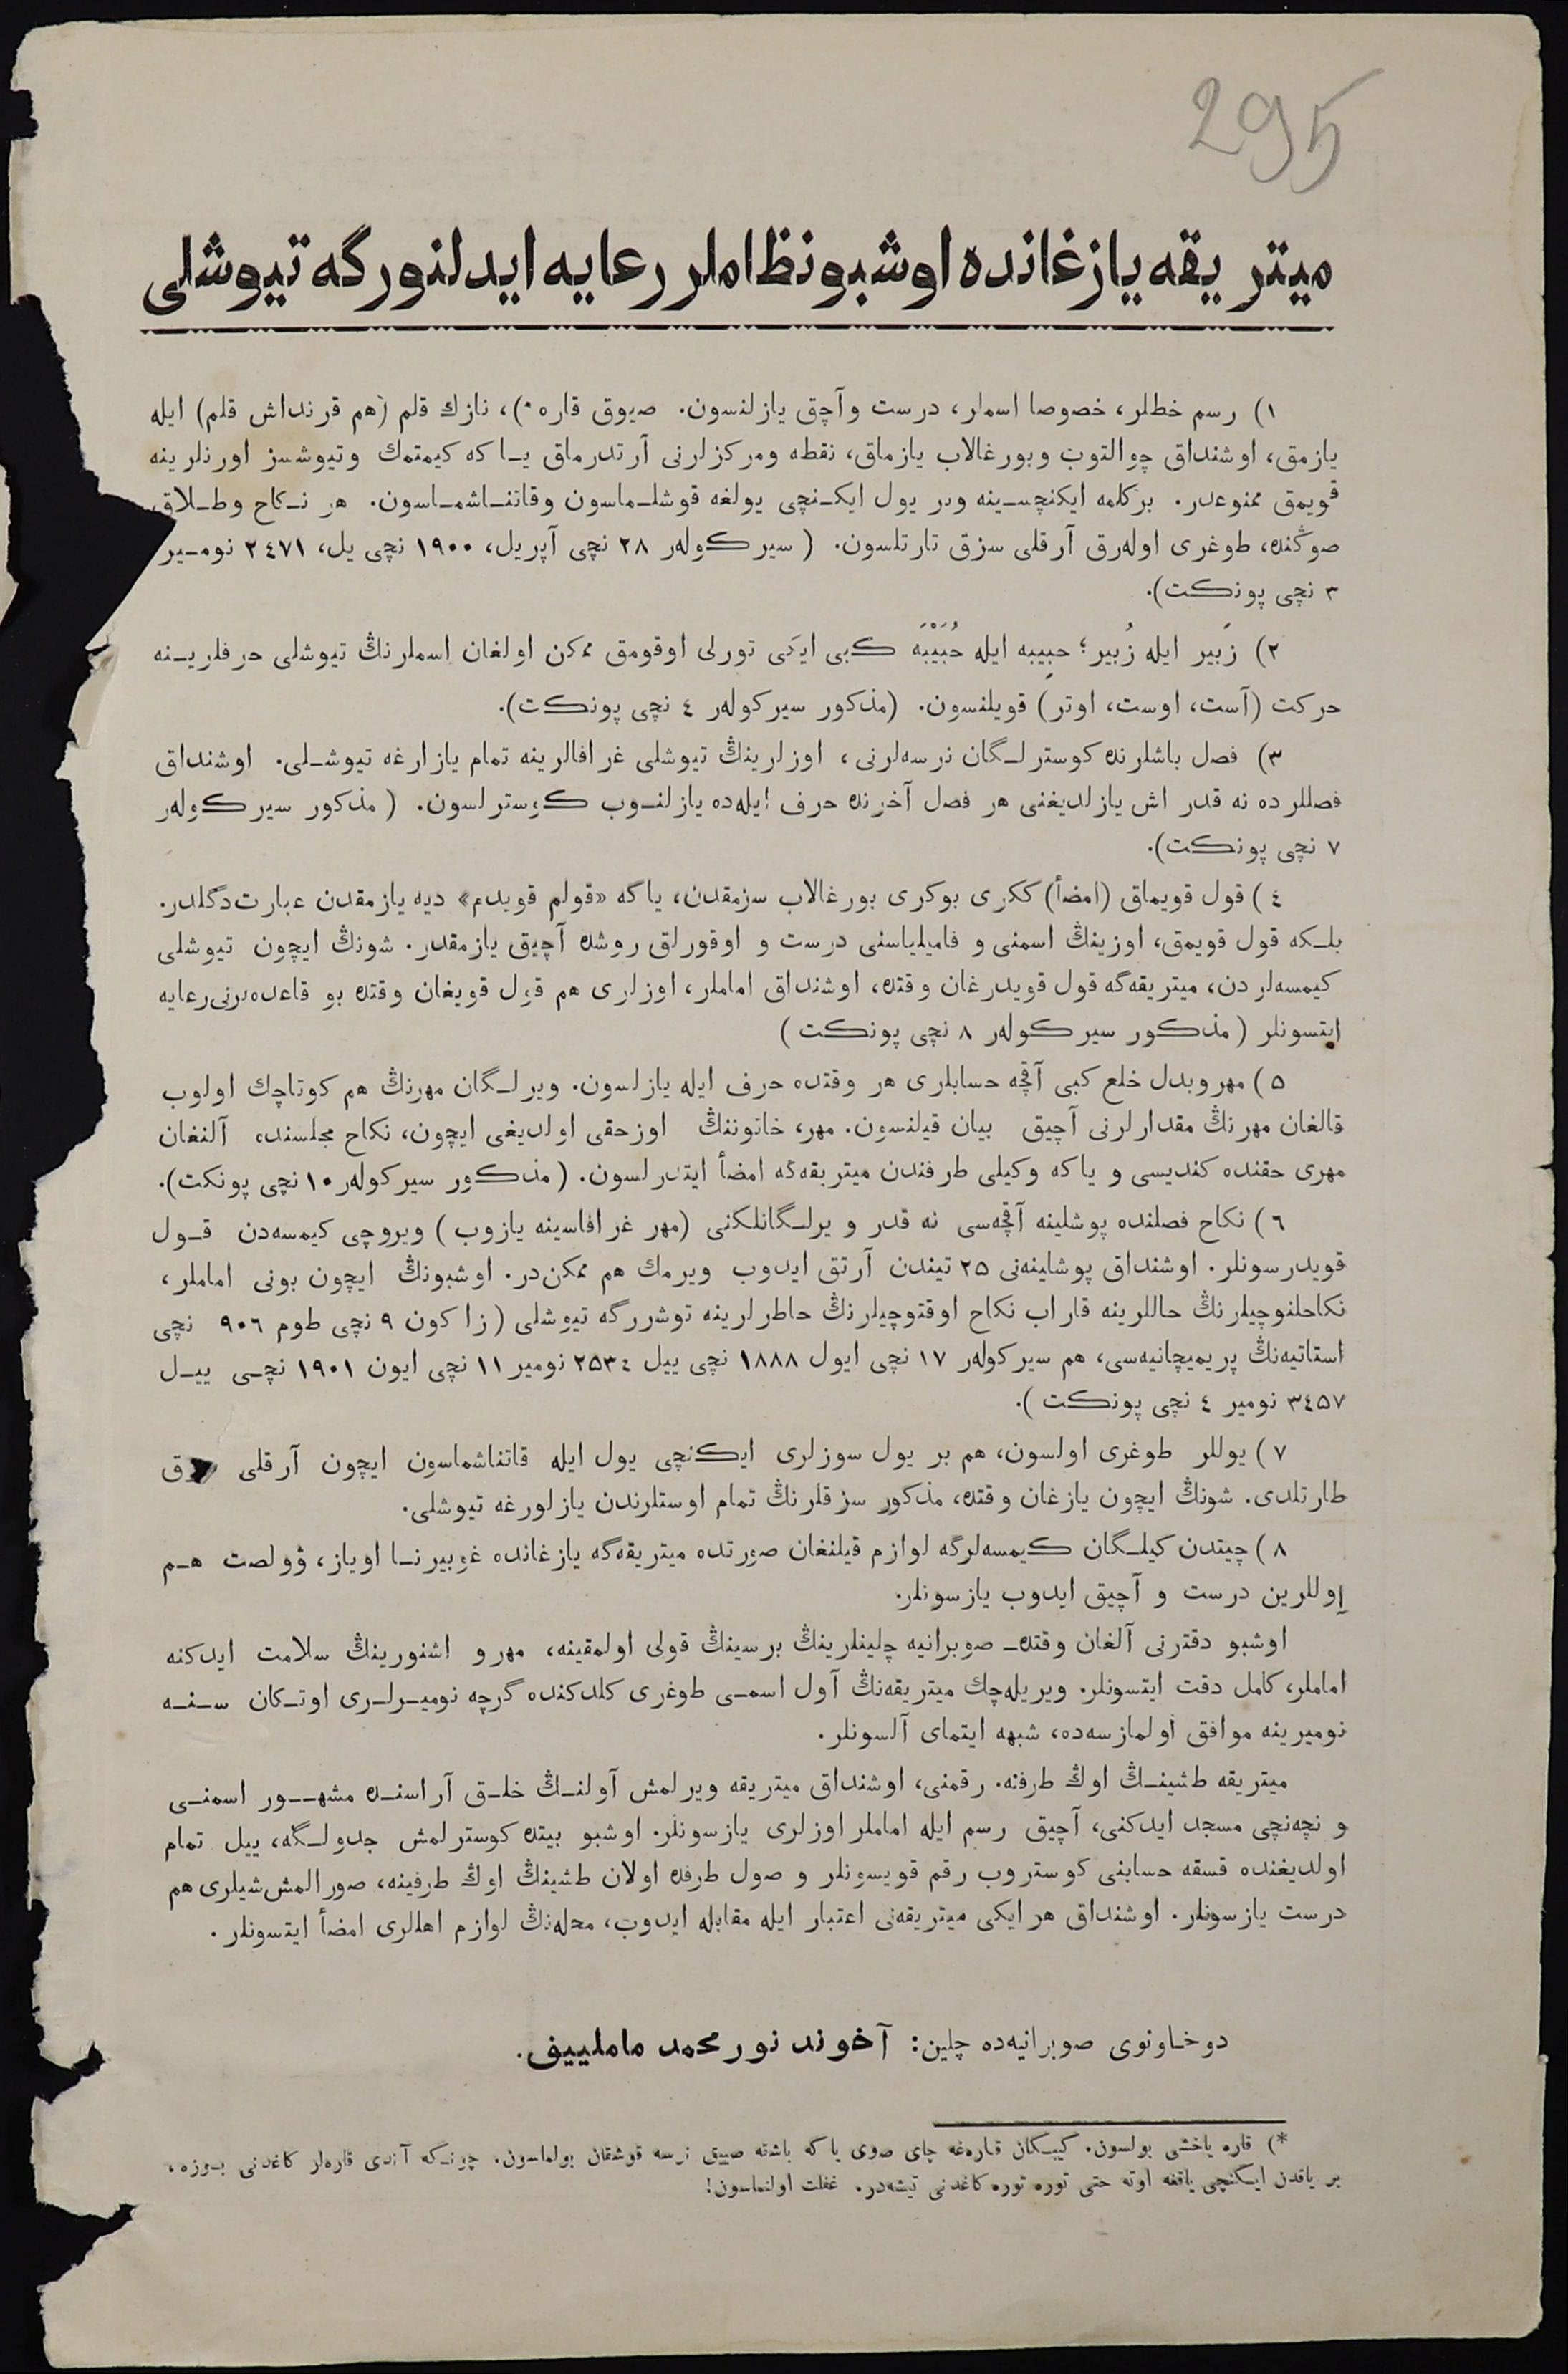 295
ميتريقه يازغانده اوشبو نظاملر رعايه ايدلنورگه تيوشلى
١) رسم خطلر، خصوصا اسملر، درست وآچق يازلنسون. صيوق قاره *)، نازك قلم (هم قرنداش قلم) ايله
يازمق، اوشنداق چوالتوب وبورغالاب يازماق، نقطه ومركزلرنى آرتدرماق يـا كه كيمتمك وتيوشسز اورنلرينه
قويمق ممنوعدر. بركلمه ايكنچسـينه وبر يول ايكـنچى يولغه قوشلـماسون وقاتنـاشمـاسون. هر نـكاح وطـلاق
صوڭنده، طوغرى اولەرق آرقلى سزق تارتلسون. (سيركولەر ٢٨ نچى آپريل، ١٩٠٠ نچى يل، ٢٤٧١ نومـير
٣ نچى پونكت).
٢) زَبير ايله زُبير؛ حبِيبه ايله حُبَيْبَه كبى ايكى تورلى اوقومق ممكن اولغان اسملرنڭ تيوشلى حرفلريـنه
حركت (آست، اوست، اوتر) قويلنسون. (مذكور سيركولەر ٤ نچى پونكت).
٣) فصل باشلرنده كوسترلـگان نرسەلرنى، اوزلرينڭ تيوشلى غرافالرينه تمام يازارغه تيوشـلى. اوشنداق
فصللرده نه قدر اش يازلديغنى هر فصل آخرنده حرف ايلەده يازلنـوب كوسترلسون. (مذكور سيركولەر
٧ نچى پونكت).
٤) قول قويماق (امضأ) ككرى بوكرى بورغالاب سزمقدن، ياگه «قولم قويدم» ديه يازمقدن عبارت دگلدر.
بلـكه قول قويمق، اوزينڭ اسمنى و فاميلياسنى درست و اوقورلق روشده آچيق يازمقدر. شونڭ ايچون تيوشلى
كيمسەلردن، ميتريقەگه قول قويدرغان وقتده، اوشنداق اماملر، اوزلرى هم قول قويغان وقتده بو قاعدەلرنى رعايه
ايتسونلر (مذكور سيركولەر ٨ نچى پونكت)
٥) مهر وبدل خلع كبى آقچه حسابلرى هر وقتده حرف ايله يازلسون. ويرلـگان مهرنڭ هم كوتاچك اولوب
قالغان مهرنڭ مقدارلرنى آچيق بيان قيلنسون. مهر، خاتوننڭ اوزحقى اولديغى ايچون، نكاح مجلسنده آلنغان
مهرى حقنده كنديسى و ياكه وكيلى طرفندن ميتريقەگه امضأ ايتدرلسون. (مذكور سيركولەر ١٠ نچى پونكت).
٦) نكاح فصلنده پوشلينه آقچەسى نه قدر ويرلـگانلكنى (مهر غرافاسينه يازوب) ويروچى كيمسەدن قـول
قويدرسونلر. اوشنداق پوشلينەنى ٢٥ تيندن آرتق ايدوب ويرمك هم ممكن در. اوشبونڭ ايچون بونى اماملر،
نكاحلنوچيلرنڭ حاللرينه قاراب نكاح اوقتوچيلرنڭ خاطرلرينه توشررگه تيوشلى (زاكون ٩ نچى طوم ٩٠٦ نچى
استاتيەنڭ پريميچانيەسى، هم سيركولەر ١٧ نچى ايول ١٨٨٨ نچى ييل ٢٥٣٤ نومير ١١ نچى ايون ١٩٠١ نچـى ييـل
٣٤٥٧ نومير ٤ نچى پونكت).
٧) يوللر طوغرى اولسون، هم بر يول سوزلرى ايكنچى يول ايله قاتناشماسون ايچون آرقلى
طارتلدى. شونڭ ايچون يازغان وقتده، مذكور سزقلرنڭ تمام اوستلرندن يازلورغه تيوشلى.
٨) چيتدن كيلـگان كيمسەلرگه لوازم قيلنغان صورتده ميتريقەگه يازغانده غوبيرنـا اوياز، ۋولصت هـم
اوللرين درست و آچيق ايدوب يازسونلر.
اوشبو دفترنى آلغان وقتده صوبرانيه چلينلرينڭ برسينڭ قولى اولمقينه، مهر و اشنورينڭ سلامت ايدكنه
اماملر، كامل دقت ايتسونلر. ويريلەچك ميتريقەنڭ آول اسمـى طوغرى كلدكنده گرچه نوميـرلـرى اوتـكان سـنـه
نوميرينه موافق اولمازسەده، شبهه ايتماى آلسونلر.
ميتريقه طشينـڭ اوڭ طرفنه رقمنى، اوشنداق ميتريقه ويرلمش آولنـڭ خلـق آراسنـده مشهــور اسمنـى
و نچەنچى مسجد ايدكنى، آچيق رسم ايله اماملر اوزلرى يازسونلر. اوشبو بيتده كوسترلمش جدولـگه، ييل تمام
اولديغنده قسقه حسابنى كوستروب رقم قويسونلر و صول طرفده اولان طشينڭ اوڭ طرفينه، صورالمش شيلرى هم
درست يازسونلر. اوشنداق هر ايكى ميتريقەنى اعتبار ايله مقابله ايدوب، محلەنڭ لوازم اهللرى امضأ ايتسونلر.
دوخاونوى صوبرانيەده چلين: آخوند نورمحمد ماملييف.
*) قاره ياخشى بولسون. كيبـكان قارەغه چاى صوى ياكه باشقه صييق نرسه قوشقان بولماسون. چونـكه آندى قارەلر كاغدنى بـوزه،
بر ياقدن ايـكنچى ياقغه اوته حتى توره توره كاغدنى تيشەدر. غفلت اولنماسون!